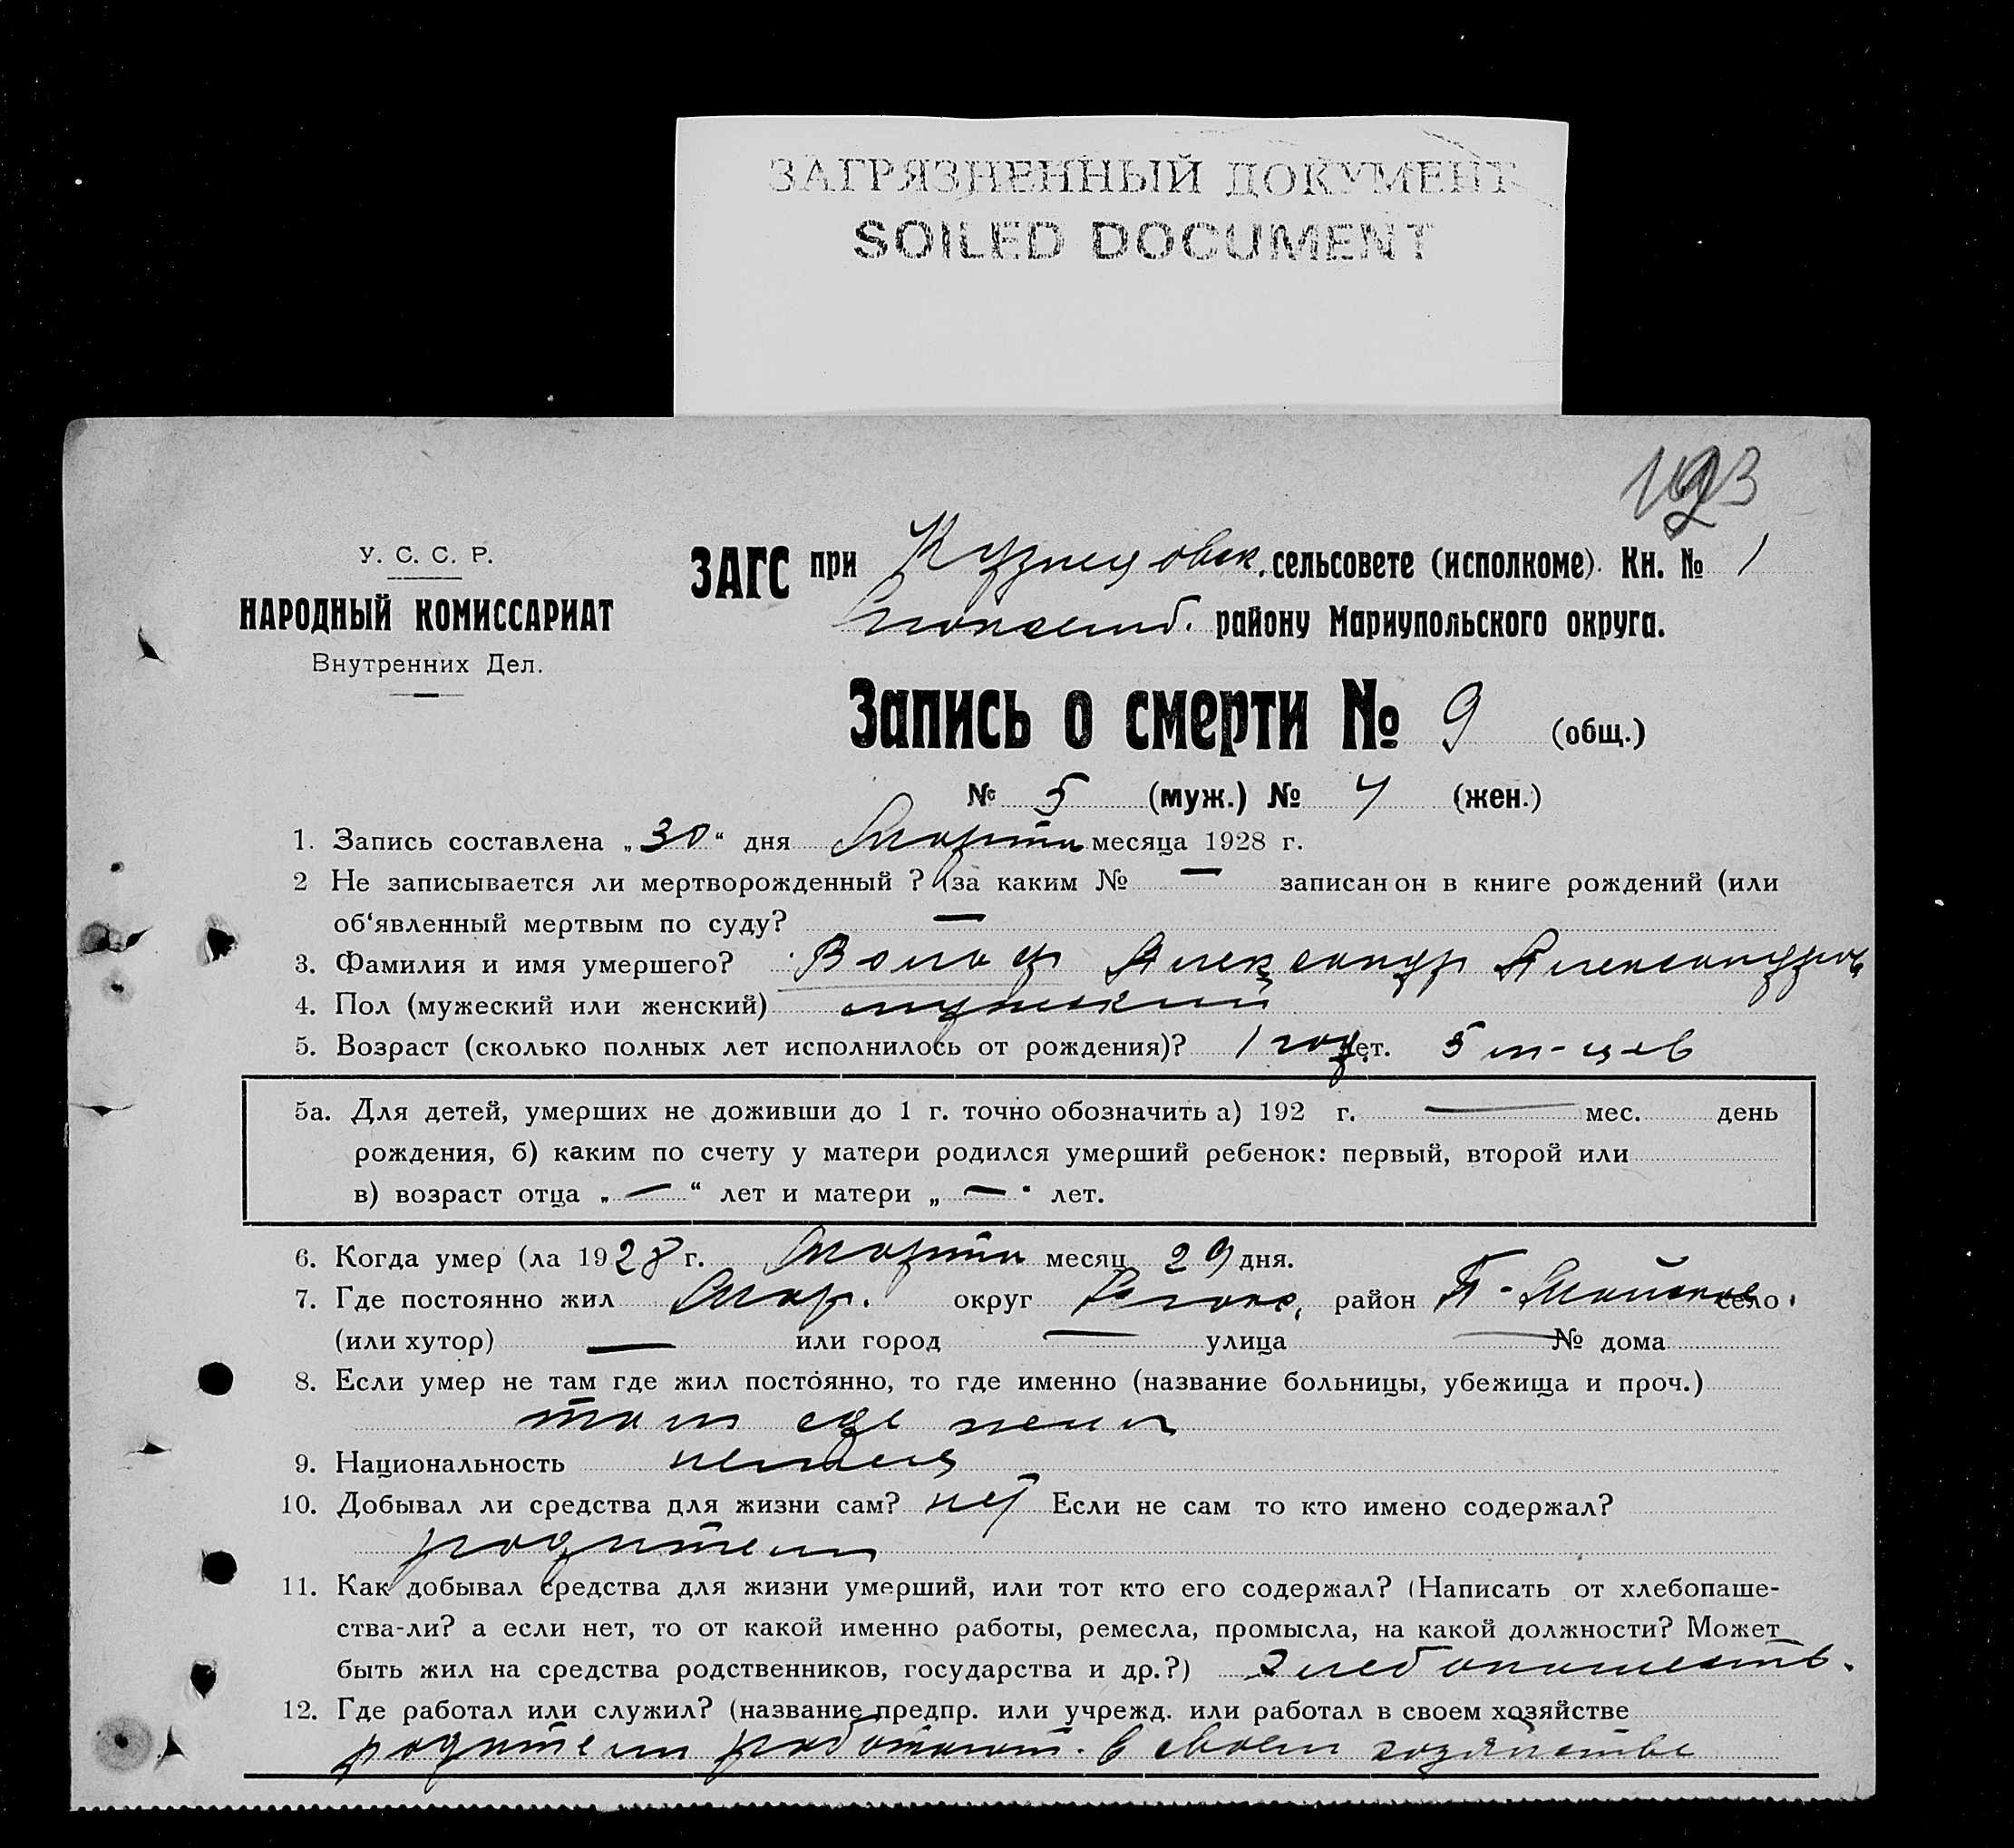 ЗАГРЯЗНЕННЫЙ ДОКУМЕНТ
SOILED DOCUMENT
У. С. С. Р.
НАРОДНЫЙ КОМИССАРИАТ
Внутренних Дел.
ЗАГС при Кузнецовск. сельсовете (исполкоме). Кн. № 1
району Мариупольского округа.
Запись о смерти № 9 (общ.)
№ 5 (муж.) № 4 (жен.)
1. Запись составлена „30“ дня Марта месяца 1928 г.
2 Не записывается ли мертворожденный ? (за каким № — записан он в книге рождений (или
об‘явленный мертвым по суду? —
3. Фамилия и имя умершего? Вольф Александр Александров
4. Пол (мужеский или женский) мужской
5. Возраст (сколько полных лет исполнилось от рождения)? 1 год лет. 5 м-цев
5а. Для детей, умерших не доживши до 1 г. точно обозначить а) 192 г. — мес. день
рождения, б) каким по счету у матери родился умерший ребенок: первый, второй или
в) возраст отца „ — “ лет и матери „ — “ лет.
6. Когда умер (ла 1928 г. Марта месяц 29 дня.
7. Где постоянно жил Мар. округ район П-Майское село
(или хутор) — или город — улица — № дома
8. Если умер не там где жил постоянно, то где именно (название больницы, убежища и проч.)
там где жил
9. Национальность немец
10. Добывал ли средства для жизни сам? нет Если не сам то кто имено содержал?
родители
11. Как добывал средства для жизни умерший, или тот кто его содержал? (Написать от хлебопаше-
ства-ли? а если нет, то от какой именно работы, ремесла, промысла, на какой должности? Может
быть жил на средства родственников, государства и др.?) хлебопашеств.
12. Где работал или служил? (название предпр. или учрежд. или работал в своем хозяйстве
родители работают в своем хозяйстве